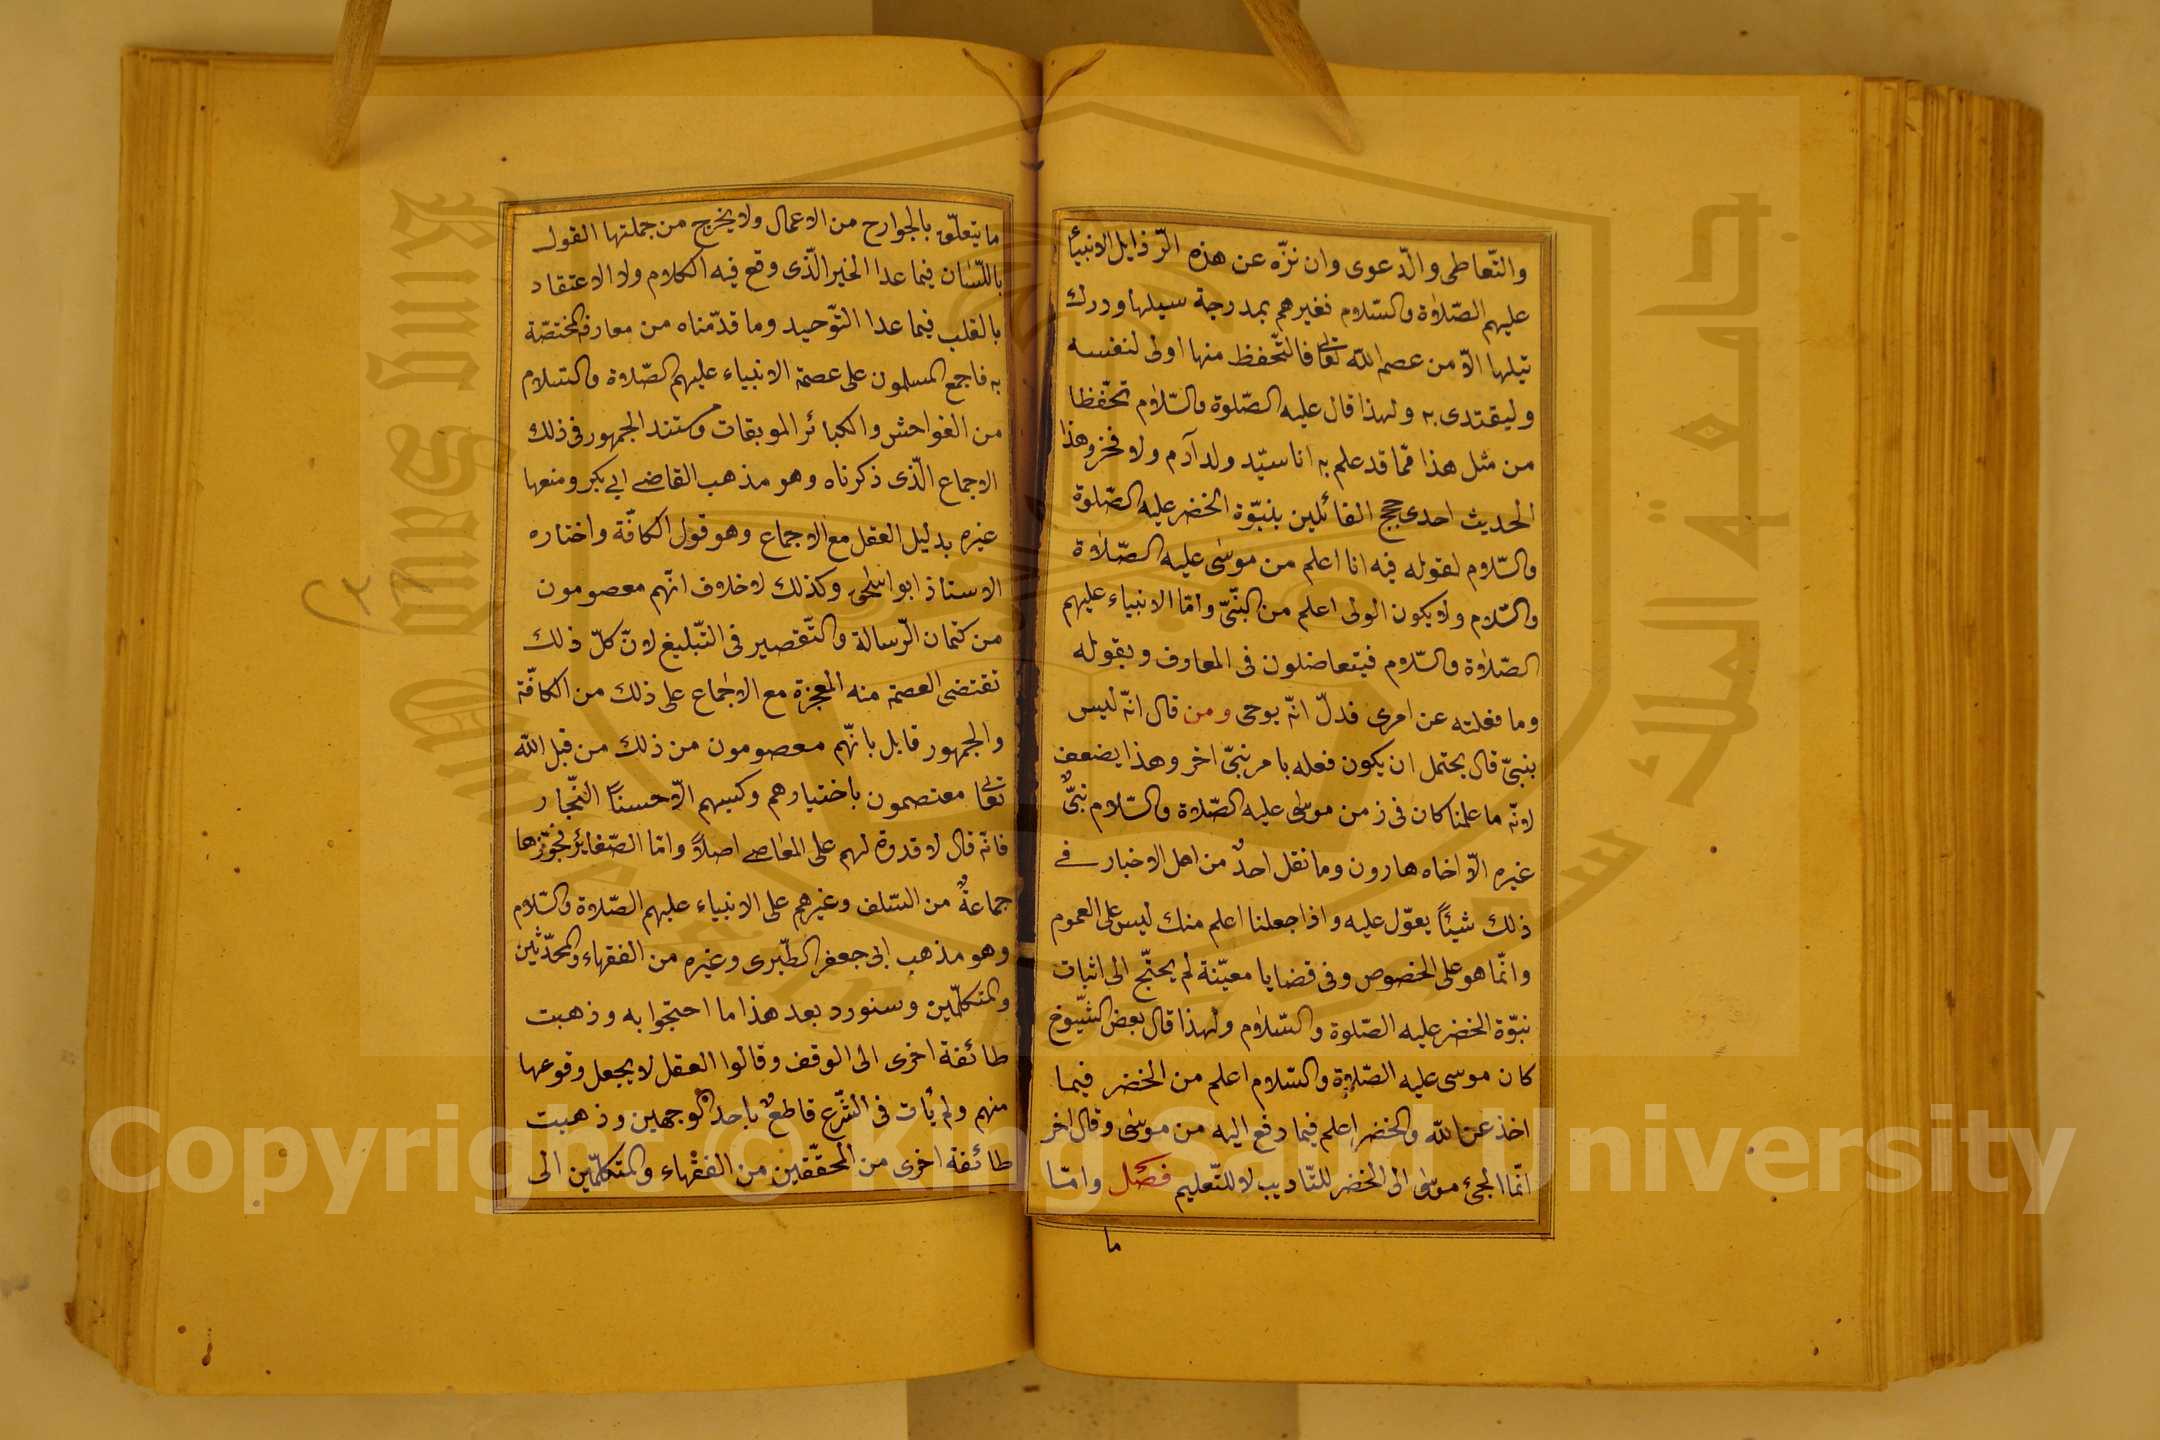 والتّعاطى والدّعوى وان نزّه عن هذه الرّذايل الانبيأ
عليهم الصّلاة والسّلام فغيرهم بمدرجة سيلها ودرك
يتلها الاّ من عصم الله تعالى فالتّحفظ منها اولى لنفسه
وليقتدى به ولهذا قال عليه الصّلوة والسّلام تحّفظا
من مثل هذا ممّا قد علم به انا سيّد ولد آدم ولا فخر وهذا
الحديث احدى حجج القائلين بنبوّة الخضر عليه الصّلوة
والسّلام لقوله فيه انا اعلم من موسى عليه الصّلاة
والسّلام ولا يكون الولى اعلم من النّبىّ وامّا الانبياء عليهم
الصّلاة والسّلام فيتعاضلون فى المعارف وبقوله
وما فعلته عن امرى فدلّ انّه يوحى ومن قال انّه ليس
بنبىّ قال يحتمل ان يكون فعله بامر نبىّ اخر وهذا يضعف
لانّه ما علمنا كان فى زمن موسى عليه الصّلاة والسّلام نبىٌّ
غيره الاّ اخاه هارون وما نقل احدٌ من اهل الاخبار فى
ذلك شيئاً يعوّل عليه واذا جعلنا اعلم منك ليس على العموم
وانّما هو على الخصوص وفى قضايا معيّنة لم يحتّج الى اثبات
نبوّة الخضر عليه الصّلوة والسّلام ولهذا قال بعض الشّيوخ
كان موسى عليه الصّلاة والسّلام اعلم من الخضر فيما
اخذ عن الله والخضر اعلم فيما رفع اليه من موسى وقال اخر
انّما الجئ موسى الى الخضر للتّاديب لا للتّعليم فصل وامّا
ما
ما يتعلّق بالجوارح من الاعمال ولا يخرج من جملتها القول
باللّسان فيما عدا الخبر الّذى وقع فيه الكلام ولا الاعتقاد
بالقلب فيما عدا التّوحيد وما قدّمناه من معارفه المختصّة
به فاجمع المسلمون على عصمة الانبياء عليهم الصّلاة والسّلام
من الفواحش والكبائر الموبقات ومستند الجمهور فى ذلك
الاجماع الّذى ذكرناه وهو مذهب القاضى ابى بكر ومنعها
غيره بدليل العقل مع الاجماع وهو قول الكافّة واختاره
الاستاذ ابو اسحق وكذلك لا خلاف انّهم معصومون
من كتمان الرّسالة والتّقصير فى التّبليغ لانّ كلّ ذلك
تقتضى العصمة منه المعجزة مع الاجماع على ذلك من الكافّة
والجمهور قايل بانّهم معصومون من ذلك من قبل الله
تعالى معتصمون باختيارهم وكسبهم الاّ حسيناً النّجّار
فانّه قال لا قدرة لهم على المعاصى اصلاً وامّا الصّغائر فجوّزها
جماعةٌ من السّلف وغيرهم على الانبياء عليهم الصّلاة والسّلام
وهو مذهب ابى جعفر الطّبرى وغيره من الفقهاء والمحدّثين
والمتكلّمين وسنورد بعد هذا ما احتجوا به وذهبت
طائفة اخرى الى الوقف وقالوا العقل لا يجعل وقوعها
منهم ولم يأت فى الشّرع قاطعٌ باحد الوجهين وذهبت
طائفة اخرى من المحقّقين من الفقهاء والمتكلّمين الى
Copyright © King Saud University
جامعة الملك سعود
King Saud University